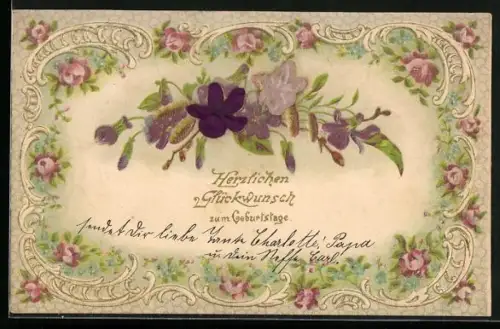 Herzlichen
Glückwunsch
zum Geburtstage.
sendet Dir liebe Tante Charlotte, Papa
u. dein Neffe Carl.